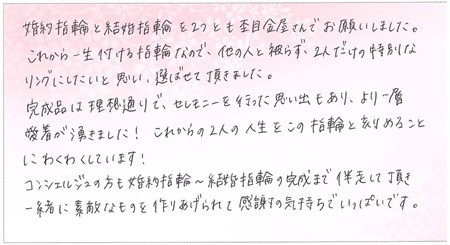 婚約指輪と結婚指輪を2つとも杢目金屋さんでお願いしました。
これから一生付ける指輪なので、他の人と被らず、2人だけの特別な
リングにしたいと思い、選ばせて頂きました。
完成品は理想通りで、セレモニーを行った思い出もあり、より一層
愛着が湧きました！ これからの2人の人生をこの指輪と刻めること
にわくわくしています！
コンシェルジュの方も婚約指輪～結婚指輪の完成まで伴走して頂き
一緒に素敵なものを作りあげられて感謝の気持ちでいっぱいです。